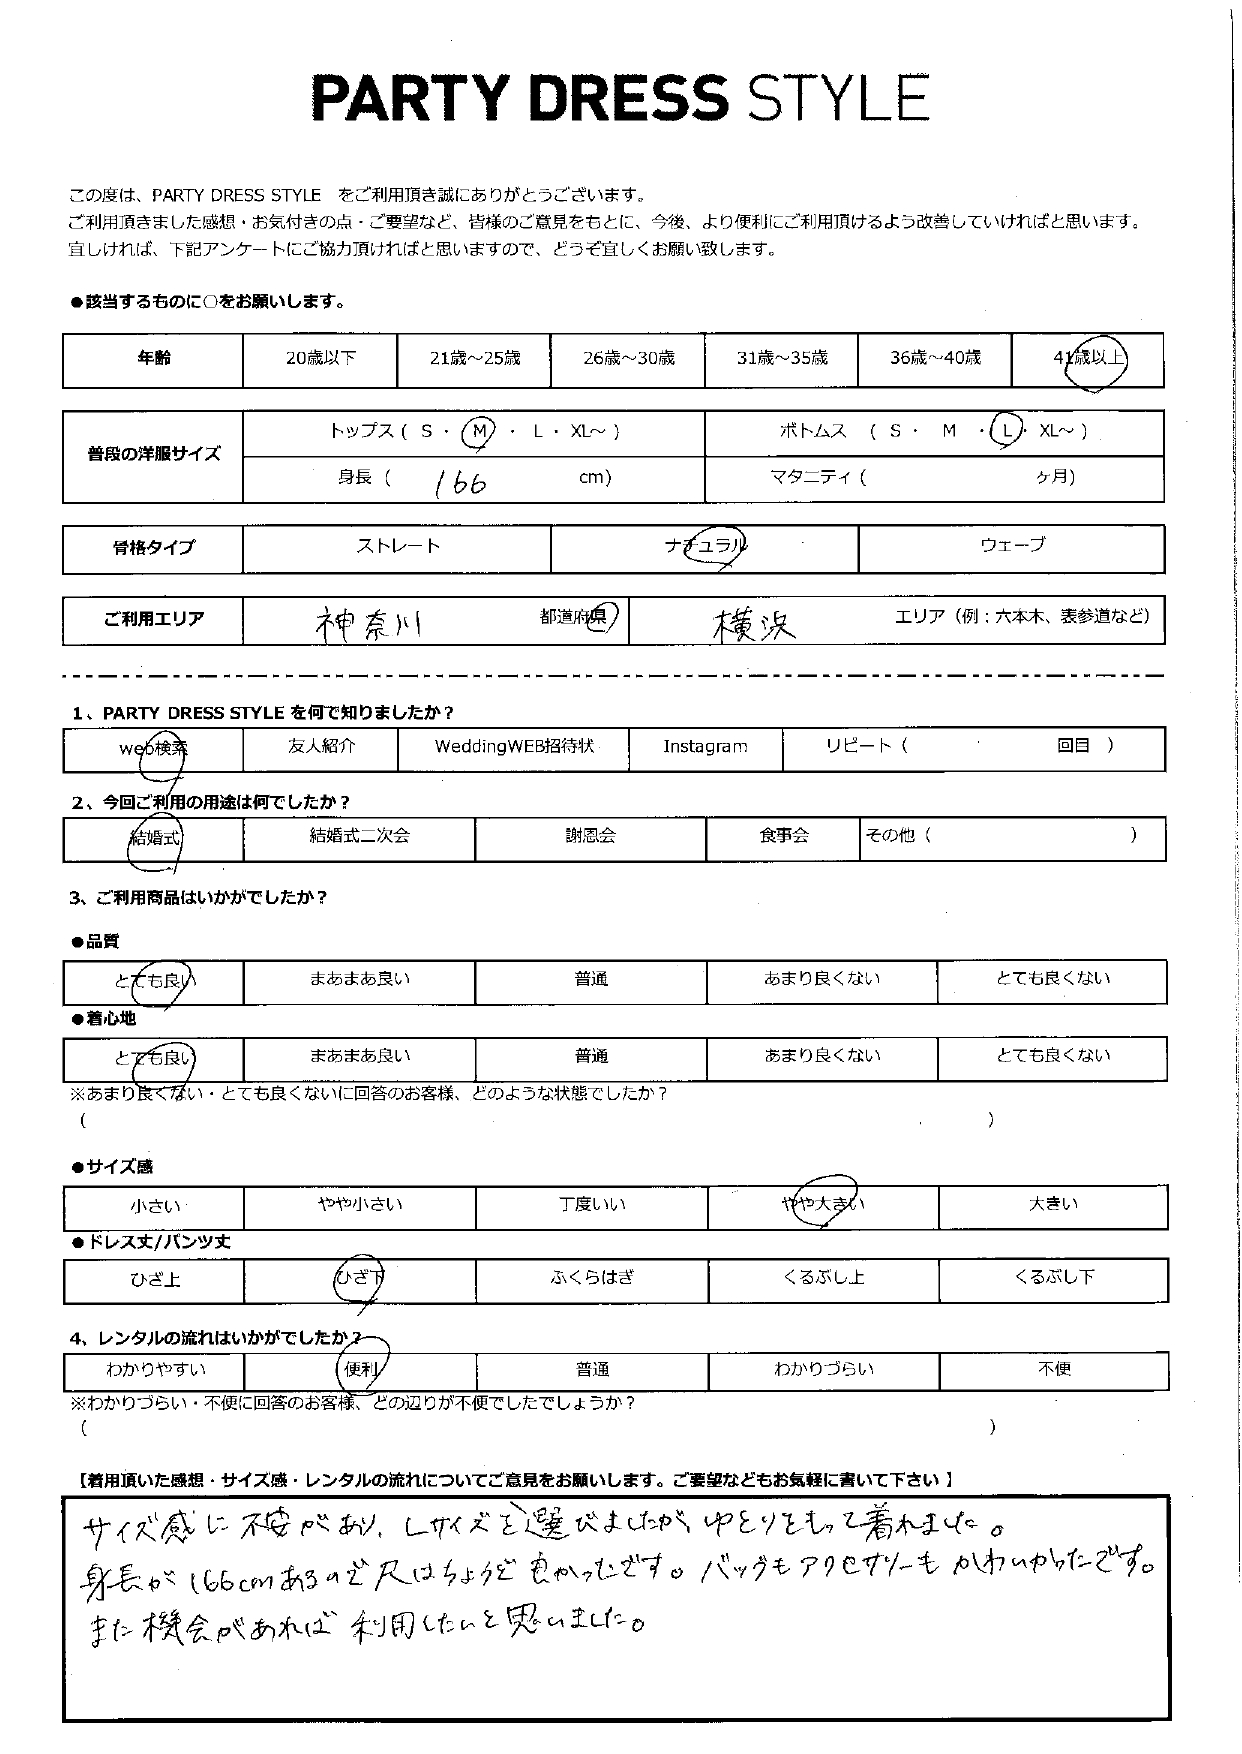 PARTY DRESS STYLE
この度は、PARTY DRESS STYLE　をご利用頂き誠にありがとうございます。
ご利用頂きました感想・お気付きの点・ご要望など、皆様のご意見をもとに、今後、より便利にご利用頂けるよう改善していければと思います。
宜しければ、下記アンケートにご協力頂ければと思いますので、どうぞ宜しくお願い致します。
●該当するものに○をお願いします。
年齢 20歳以下 21歳～25歳 26歳～30歳 31歳～35歳 36歳～40歳 41歳以上
普段の洋服サイズ トップス ( S ・ M ・ L ・ XL～ ) ボトムス ( S ・ M ・ L ・ XL～ )
身長 ( 166 cm) マタニティ ( ヶ月)
骨格タイプ ストレート ナチュラル ウェーブ
ご利用エリア 神奈川 都道府県 横浜 エリア（例：六本木、表参道など）
1、PARTY DRESS STYLE を何で知りましたか？
web検索 友人紹介 WeddingWEB招待状 Instagram リピート ( 回目 )
2、今回ご利用の用途は何でしたか？
結婚式 結婚式二次会 謝恩会 食事会 その他 ( )
3、ご利用商品はいかがでしたか？
●品質
とても良い まあまあ良い 普通 あまり良くない とても良くない
●着心地
とても良い まあまあ良い 普通 あまり良くない とても良くない
※あまり良くない・とても良くないに回答のお客様、どのような状態でしたか？
( )
●サイズ感
小さい やや小さい 丁度いい やや大きい 大きい
●ドレス丈/パンツ丈
ひざ上 ひざ下 ふくらはぎ くるぶし上 くるぶし下
4、レンタルの流れはいかがでしたか？
わかりやすい 便利 普通 わかりづらい 不便
※わかりづらい・不便に回答のお客様、どの辺りが不便でしたでしょうか？
( )
【着用頂いた感想・サイズ感・レンタルの流れについてご意見をお願いします。ご要望などもお気軽に書いて下さい 】
サイズ感に不安があり、Lサイズを選びましたが、ゆとりをもって着れました。
身長が166cmあるので尺はちょうど良かったです。バッグもアクセサリーもかわいかったです。
また機会があれば利用したいと思いました。